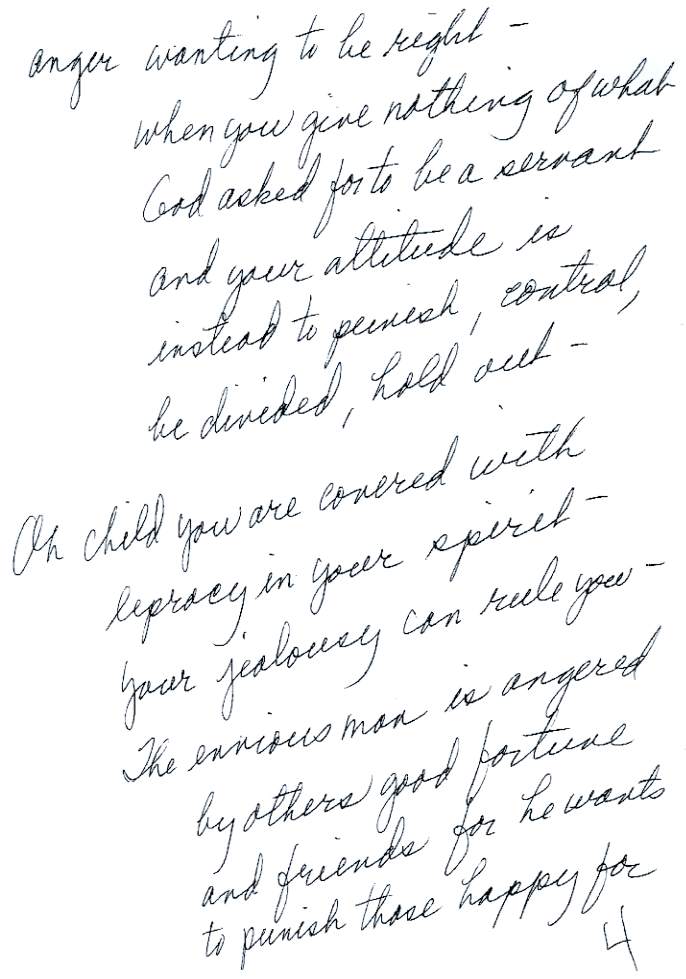 anger wanting to be right –
when you give nothing of what
God asked for to be a servant
and your attitude is
instead to punish, control,
be divided, hold out –
Oh child you are covered with
lepracy in your spirit –
your jealousy can rule you –
The envious man is angered
by others good fortune
and friends for he wants
to punish those happy for
4